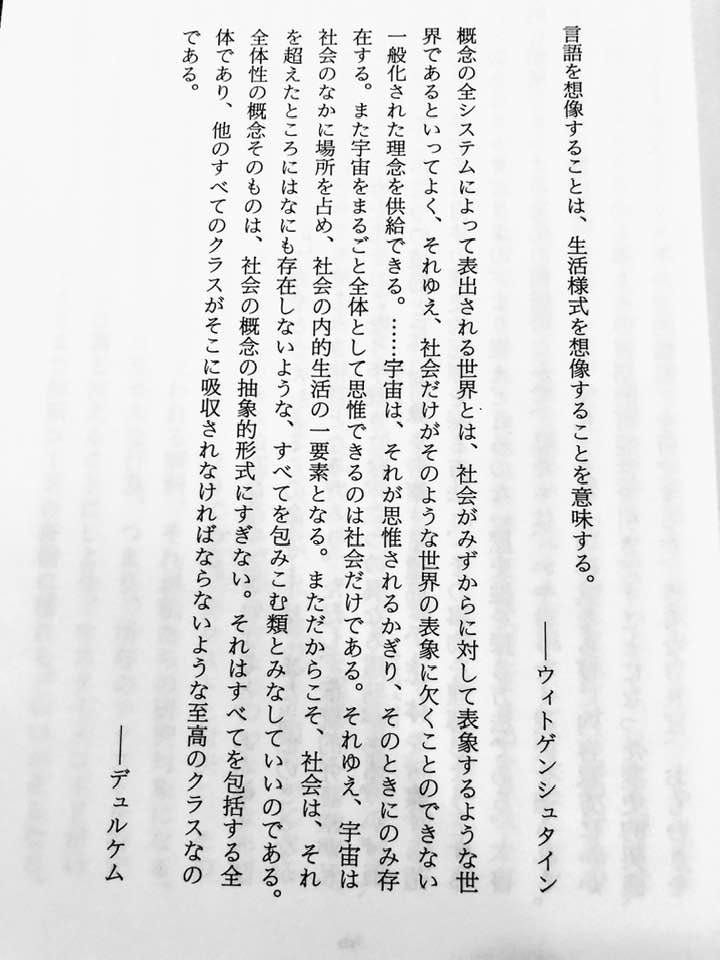 言語を想像することは、生活様式を想像することを意味する。
――ウィトゲンシュタイン
概念の全システムによって表出される世界とは、社会がみずからに対して表象するような世
界であるといってよく、それゆえ、社会だけがそのような世界の表象に欠くことのできない
一般化された理念を供給できる。……宇宙は、それが思惟されるかぎり、そのときにのみ存
在する。また宇宙をまるごと全体として思惟できるのは社会だけである。それゆえ、宇宙は
社会のなかに場所を占め、社会の内的生活の一要素となる。まただからこそ、社会は、それ
を超えたところにはなにも存在しないような、すべてを包みこむ類とみなしていいのである。
全体性の概念そのものは、社会の概念の抽象的形式にすぎない。それはすべてを包括する全
体であり、他のすべてのクラスがそこに吸収されなければならないような至高のクラスなの
である。
――デュルケム